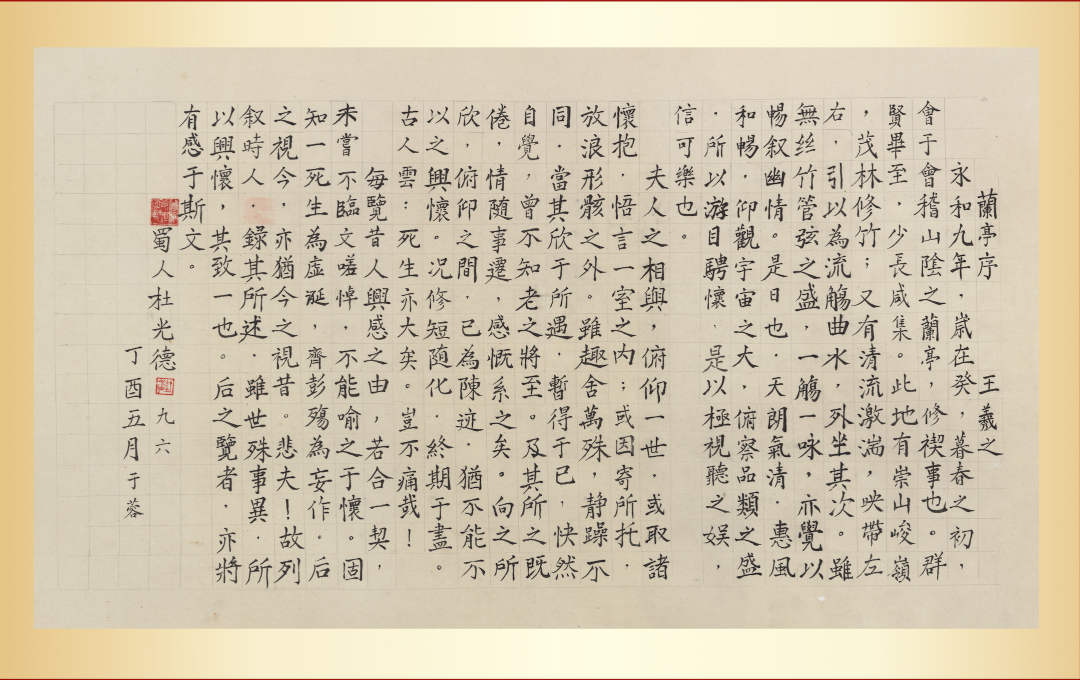 蘭亭序
王羲之
永和九年，歲在癸，暮春之初，
會于會稽山陰之蘭亭，修禊事也。群
賢畢至，少長咸集。此地有崇山峻嶺
，茂林修竹；又有清流激湍，映帶左
右，引以為流觴曲水，外坐其次。雖
無丝竹管弦之盛，一觴一咏，亦覺以
暢叙幽情。是日也．天朗氣清．惠風
和暢．仰觀宇宙之大，俯察品類之盛
．所以游目騁懷．是以極視聽之娱，
信可樂也。
夫人之相與，俯仰一世．或取諸
懷抱．悟言一室之内；或因寄所托．
放浪形骸之外。雖趣舍萬殊，静躁不
同．當其欣于所遇．暫得于已．快然
自覺，曾不知老之將至。及其所之既
倦，情隨事遷，感慨系之矣。向之所
欣，俯仰之間．已為陳迹．猶不能不
以之興懷。况修短随化．終期于盡。
古人雲：死生亦大矣。豈不痛哉！
每覽昔人興感之由，若合一契，
未嘗不臨文嗟悼．不能喻之于懷。固
知一死生為虚诞，齊彭殤為妄作．后
之視今．亦猶今之視昔。悲夫！故列
叙時人．錄其所述．雖世殊事異．所
以興懷，其致一也。后之覽者．亦將
有感于斯文。
蜀人杜光德九六
丁酉五月于蓉